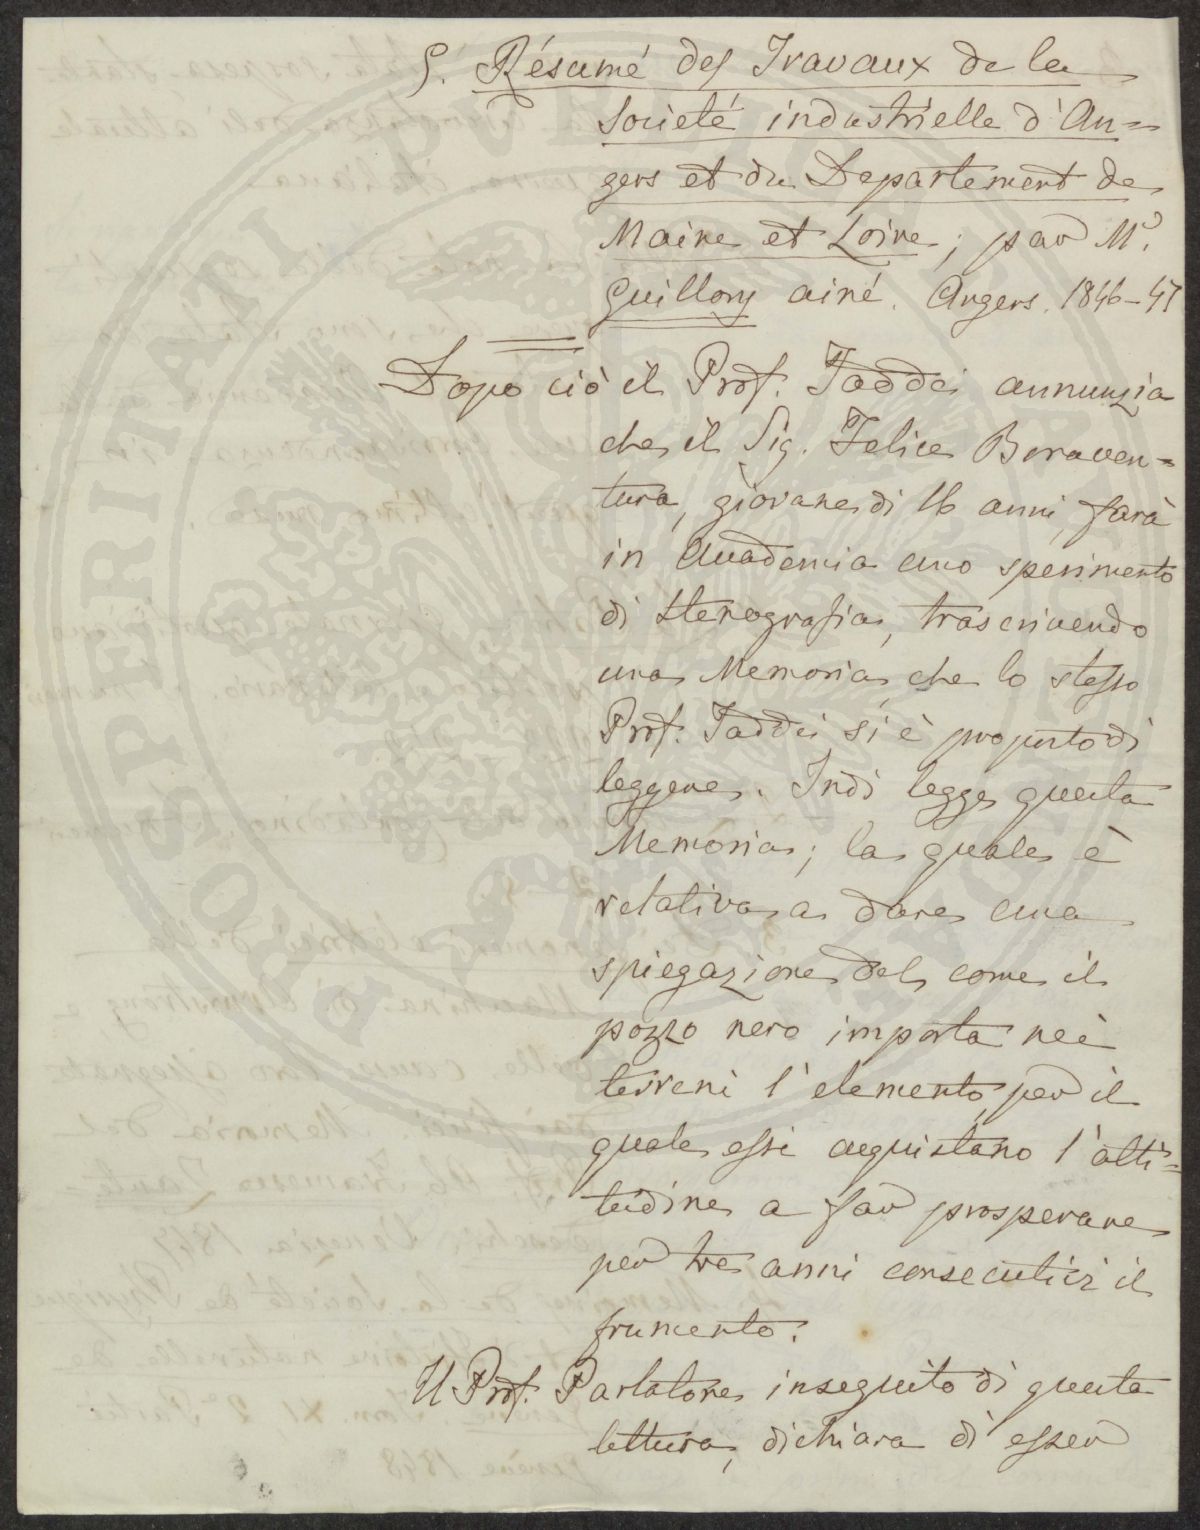 5. Résumé des Travaux de la
Societé industrielle d'An=
gers et du Departement de
Maine et Loire; par Mr.
Guillory ainé. Angers. 1846-47
Dopo ciò il Prof. Taddei annunzia
che il Sig. Felice Bonaven=
tura, giovane di 16 anni, farà
in Accademia uno sperimento
di stenografia, trascrivendo
una Memoria che lo stesso
Prof. Taddei si è proposto di
leggere. Indi legge questa
Memoria; la quale è
relativa a dare una
spiegazione del come il
pozzo nero importa nei
terreni l'elemento per il
quale essi acquistano l'atti=
tudine a far prosperare
per tre anni consecutivi il
frumento.
Il Prof. Parlatore inseguito di questa
lettura, dichiara di esser
PROSPERITATI PUBLICAE